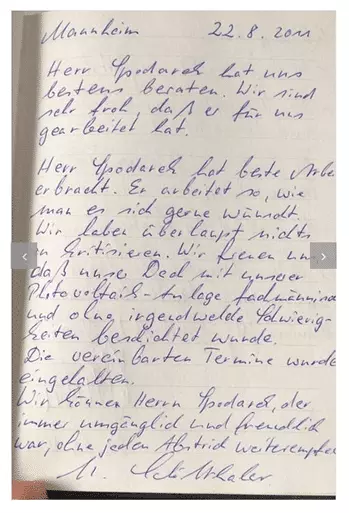 Mannheim 22.8.2011
Herr Spodarek hat uns
bestens beraten. Wir sind
sehr froh, daß er für uns
gearbeitet hat.
Herr Spodarek hat beste Arbe
erbracht. Er arbeitet so, wie
man es sich gerne wünscht.
Wir haben überhaupt nichts
zu kritisieren. Wir freuen uns
daß unser Dach mit unserer
Photovoltaik-Anlage fachmännisch
und ohne irgendwelche Schwierig-
keiten beschichtet wurde.
Die vereinbarten Termine wurde
eingehalten.
Wir können Herrn Spodarek, der
immer umgänglich und freundlich
war, ohne jeden Abstrich weiterempfeh